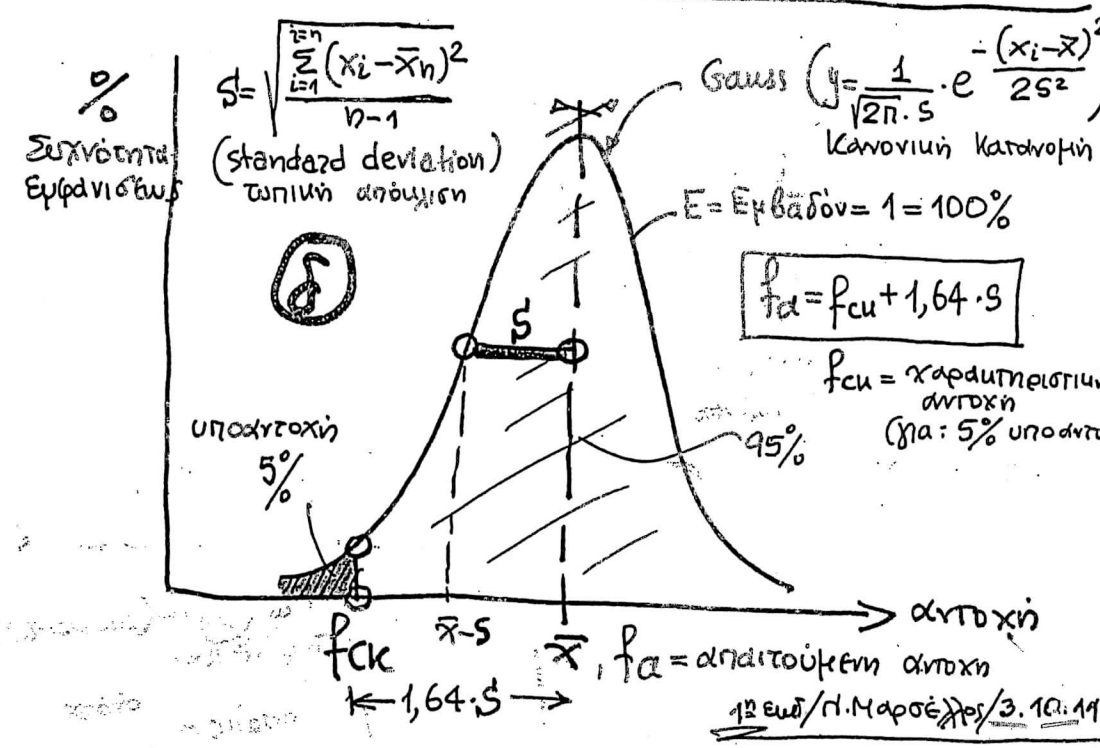 %
Συχνότητα
εμφανίσεως
S = √( Σ_{i=1}^{i=n} (xi - x̄n)² / (n-1) )
(standard deviation)
τυπική απόκλιση
δ
Gauss (y = 1/(√2π · S) · e^(-(xi - x̄)²/(2S²))
Κανονική Κατανομή
E = Εμβαδόν = 1 = 100%
fa = fcκ + 1,64 · S
fcκ = χαρακτηριστικ
αντοχή
(για: 5% υποαντο
S
υποαντοχή
5%
95%
αντοχή
fcκ
x̄-S
x̄, fa = απαιτούμενη αντοχη
1,64·S
1η εκδ/Ν.Μαρσέλλος/3.10.19